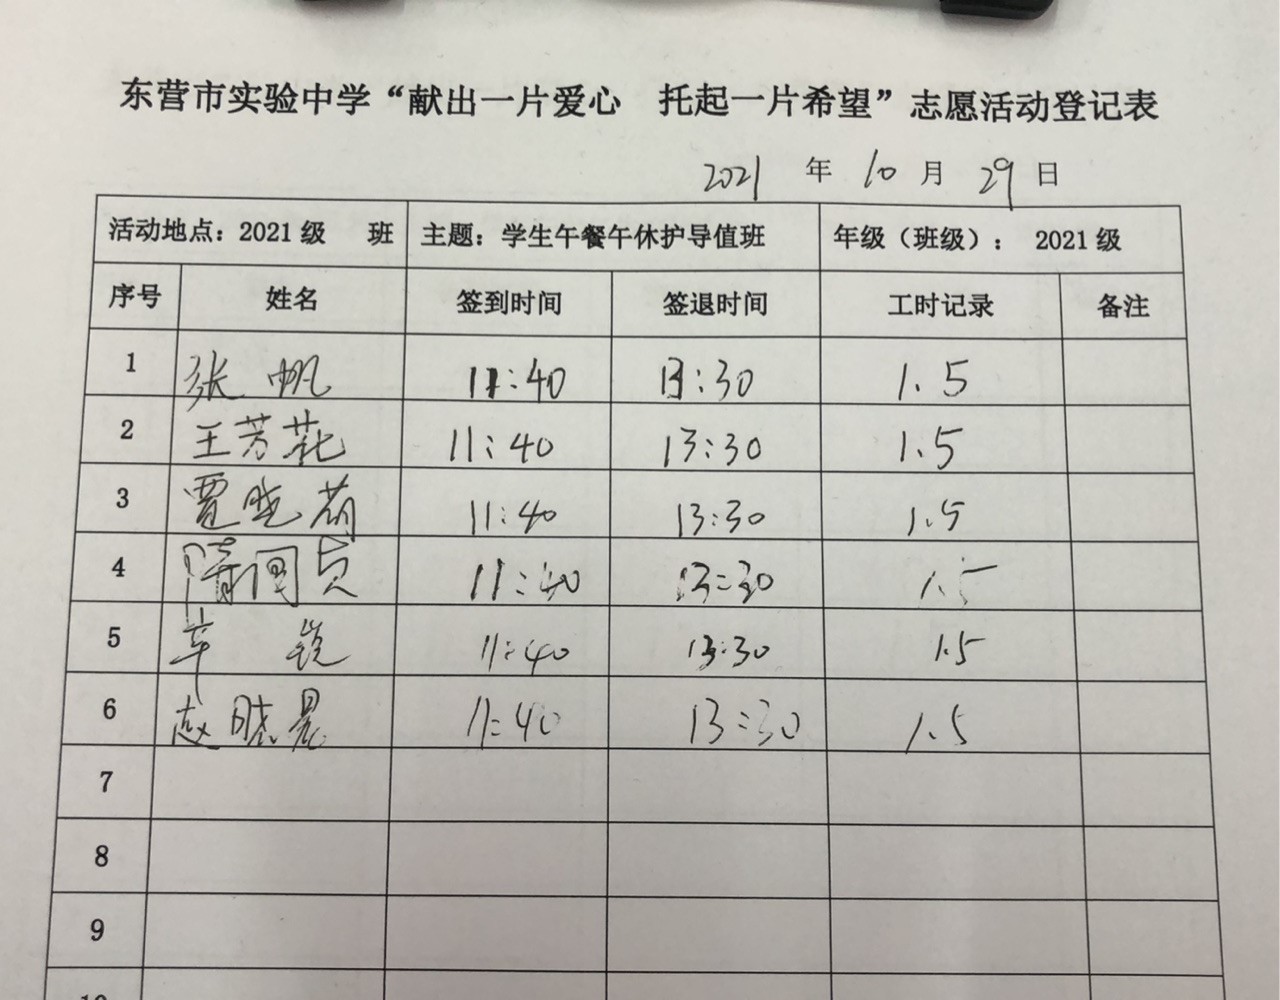 东营市实验中学“献出一片爱心 托起一片希望”志愿活动登记表
2021 年 10 月 29 日
活动地点：2021级 班 主题：学生午餐午休护导值班 年级（班级）： 2021级
序号 姓名 签到时间 签退时间 工时记录 备注
1 张帆 11:40 13:30 1.5
2 王芳花 11:40 13:30 1.5
3 贾晓萌 11:40 13:30 1.5
4 隋国贞 11:40 13:30 1.5
5 辛锐 11:40 13:30 1.5
6 赵晓晨 11:40 13:30 1.5
7
8
9